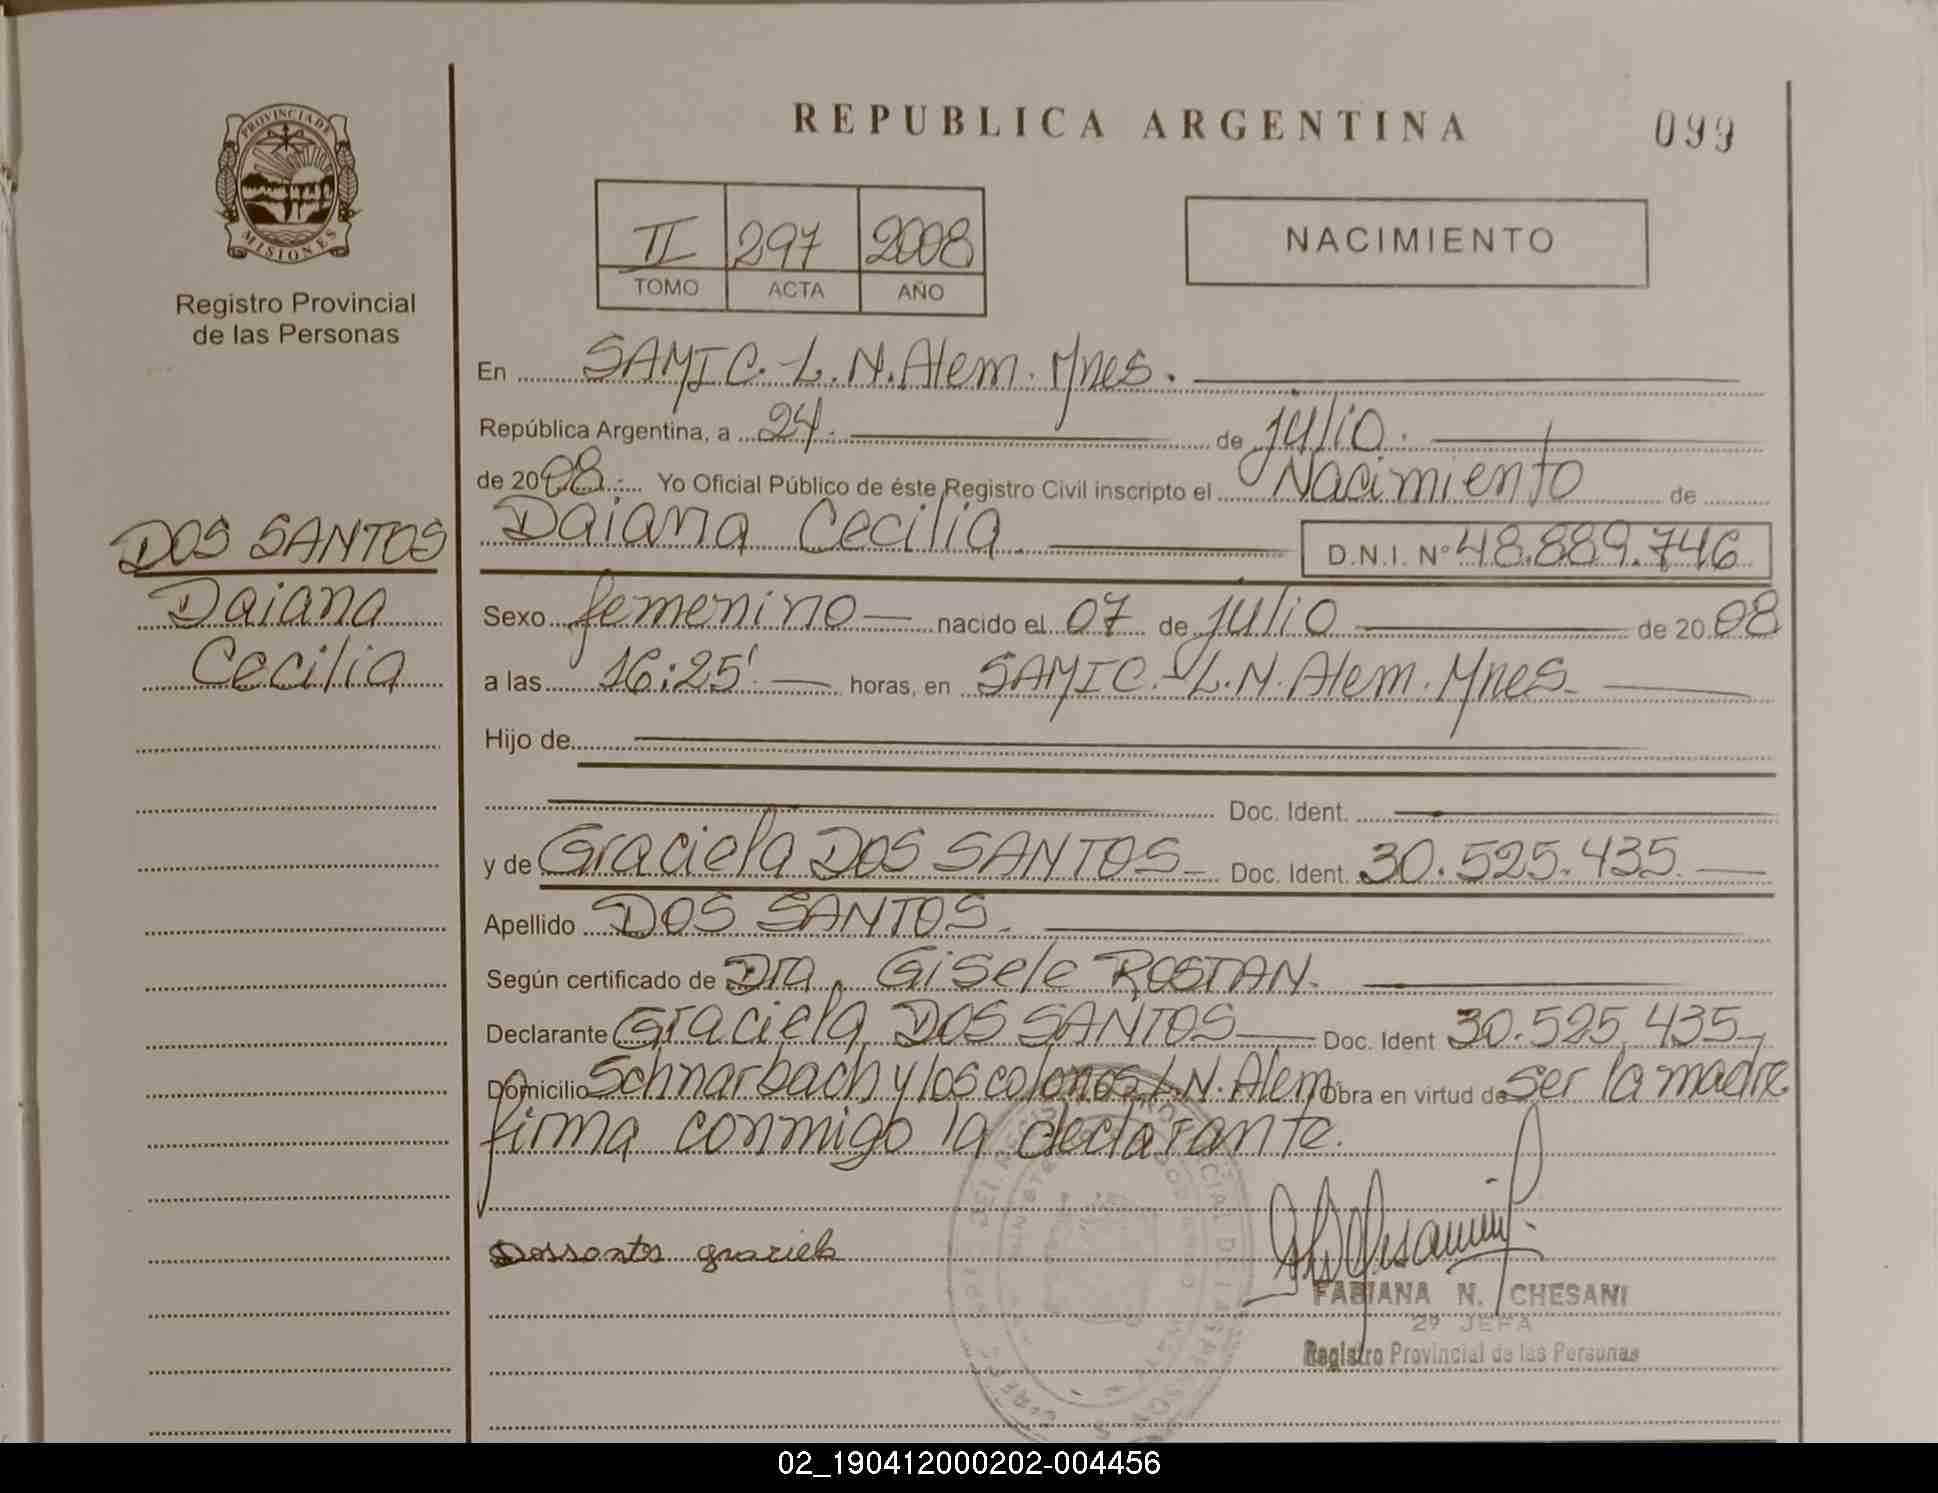 REPUBLICA ARGENTINA
099
PROVINCIA DE
MISIONES
Registro Provincial
de las Personas
II 297 2008
TOMO ACTA AÑO
NACIMIENTO
En SAMIC. L. N. Alem. Mnes.
República Argentina, a 24. de julio.
de 2008. Yo Oficial Público de éste Registro Civil inscripto el Nacimiento de
Daiana Cecilia D.N.I. Nº 48.889.746
DOS SANTOS
Daiana
Cecilia
Sexo femenino nacido el 07 de julio de 2008
a las 16:25' horas, en SAMIC. L. N. Alem. Mnes.
Hijo de
Doc. Ident.
y de Graciela DOS SANTOS Doc. Ident. 30.525.435.
Apellido DOS SANTOS.
Según certificado de Dra. Gisele ROSTAN.
Declarante Graciela DOS SANTOS Doc. Ident 30.525.435
Domicilio Schnarbach y los colonos L. N. Alem Obra en virtud de ser la madre
firma conmigo la declarante.
Dossantos graciela
FABIANA N. CHESANI
2º JEFA
Registro Provincial de las Personas
02_190412000202-004456